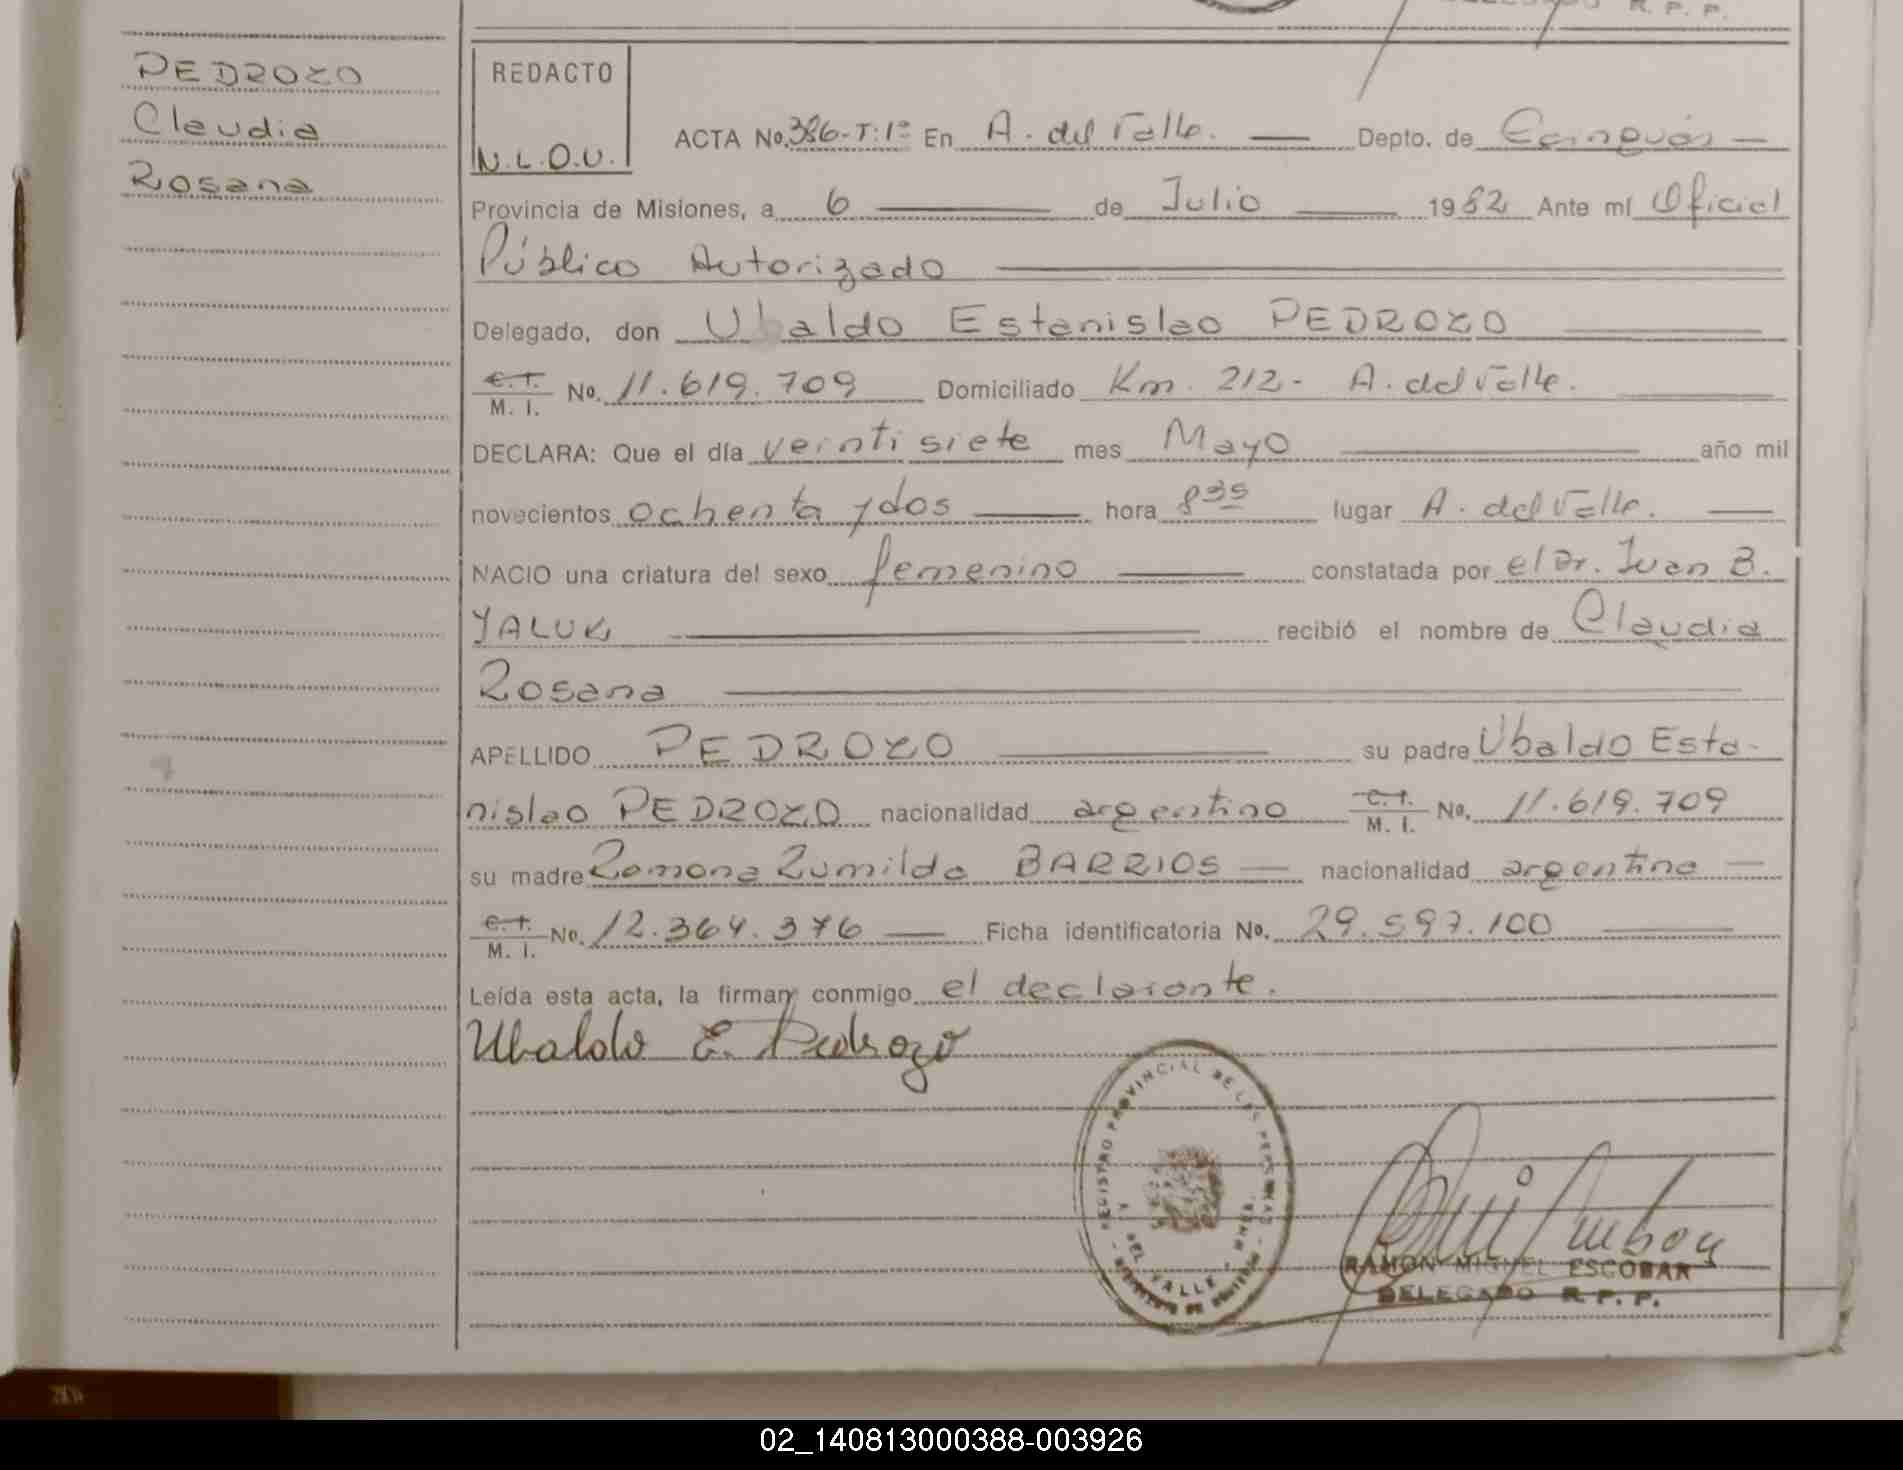 R. P. P.
PEDROZO
Claudia
Rosana
REDACTO
N.L.O.U.
ACTA No. 386-T:1º En A. del Valle. Depto. de Cainguás
Provincia de Misiones, a 6 de Julio 1982 Ante mí Oficial
Público Autorizado
Delegado, don Ubaldo Estanislao PEDROZO
C.I. M. I. No. 11.619.709 Domiciliado Km. 212- A. del Valle.
DECLARA: Que el día veintisiete mes Mayo año mil
novecientos ochenta y dos hora 8 35 lugar A. del Valle.
NACIO una criatura del sexo femenino constatada por el Dr. Juan B.
YALUK recibió el nombre de Claudia
Rosana
APELLIDO PEDROZO su padre Ubaldo Esta-
nislao PEDROZO nacionalidad argentino C.I. M. I. No. 11.619.709
su madre Ramona Zumilda BARRIOS nacionalidad argentina
C.I. M. I. No. 12.364.376 Ficha identificatoria No. 29.597.100
Leída esta acta, la firman conmigo el declarante.
Ubaldo E. Pedrozo
REGISTRO PROVINCIAL DE LAS PERSONAS
A. DEL VALLE - MNES.
RAMON MIGUEL ESCOBAR
DELEGADO R. P. P.
02_140813000388-003926